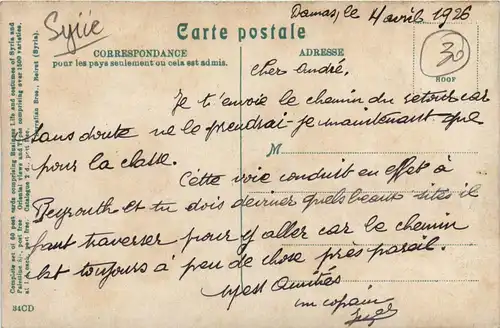 Syrie
Damas, le 4 avril 1926
Carte postale
30
CORRESPONDANCE
pour les pays seulement où cela est admis.
ADRESSE
Cher André,
Je t'envoie le chemin du retour car
sans doute ne le prendrai-je maintenant que
pour la classe.
M
Cette voie conduit en effet à
Beyrouth et tu dois deviner quels beaux sites il
faut traverser pour y aller car le chemin
est toujours à peu de chose près pareil.
Mes Amitiés
un copain
Complete set of 96 post cards comprising Business Life and costumes of Syria and
Palestine
post free
Oriental
and Types comprising over 1500 varieties.
post free
Catalogue
Bros., Beirut (Syria).
34CD